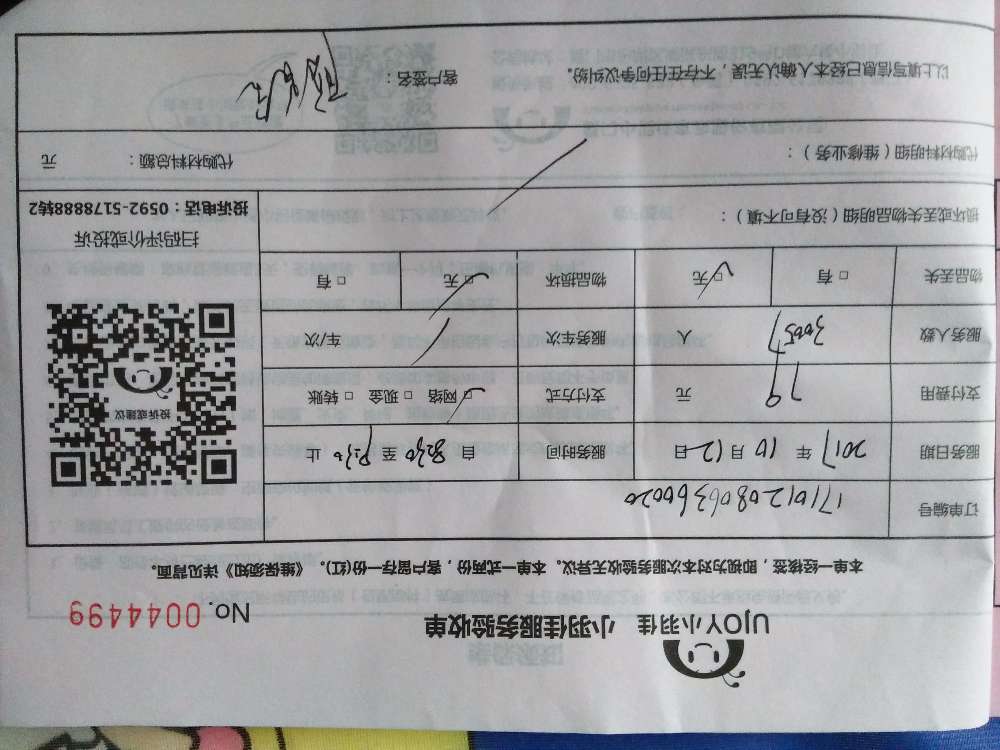 UJOY小羽佳 小羽佳服务验收单
No. 0044499
本单一经核签，即视为对本次服务验收无异议。本单一式两份，客户留存一份(红)。《维保须知》详见背面。
订单编号 17101208063660020
服务日期 2017 年 10 月 12 日 服务时间 自 8:30 至 止
支付费用 79 元 支付方式 □网络 □现金 □转账
服务人数 人 服务车次 车次
物品丢失 □有 □无 物品损坏 □无 □有
投诉或建议
扫码评价或投诉
投诉电话：0592-5178888转2
损坏或丢失物品明细（没有可不填）：
代购材料明细（维修业务）： 代购材料总额： 元
以上填写信息已经本人确认无误，不存在任何争议纠纷。 客户签名：